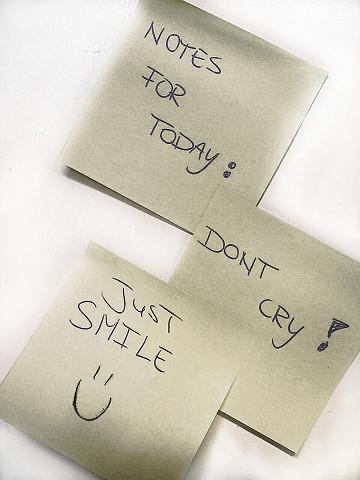 NOTES
FOR
TODAY:
DONT
CRY!
JUST
SMILE